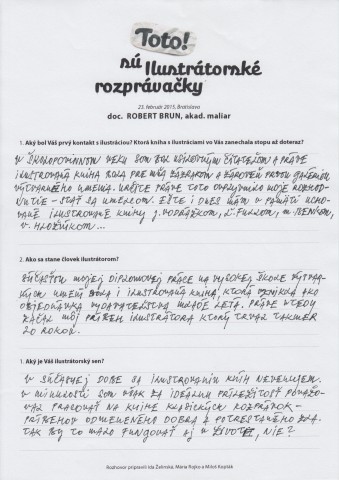 Toto!
sú Ilustrátorské
rozprávačky
23. február 2015, Bratislava
doc. ROBERT BRUN, akad. maliar
1. Aký bol Váš prvý kontakt s ilustráciou? Ktorá kniha s ilustráciami vo Vás zanechala stopu až doteraz?
V ŠKOLOPOVINNOM VEKU SOM BOL ČITATEĽOM A PRÁVE
ILUSTROVANÁ KNIHA BOLA PRE MŇA ZÁZRAKOM A ZÁROVEŇ PRVOU GALÉRIOU
VÝTVARNÉHO UMENIA. URČITE PRÁVE TOTO OVPLYVNILO MOJE ROZHOD-
NUTIE - STAŤ SA UMELCOM. EŠTE I DNES MÁM V PAMÄTI
ILUSTROVANÉ KNIHY J. VODRÁŽKOM, Ľ. FULLOM, M. BENKOM,
V. HLOŽNÍKOM...
2. Ako sa stane človek ilustrátorom?
SÚČASŤOU MOJEJ DIPLOMOVEJ PRÁCE NA VYSOKEJ ŠKOLE VÝTVAR-
NÝCH UMENÍ BOLA I ILUSTROVANÁ KNIHA, KTORÁ VZNIKLA AKO
OBJEDNÁVKA VYDAVATEĽSTVA MLADÉ LETÁ. PRÁVE VTEDY
ZAČAL MÔJ PRÍBEH ILUSTRÁTORA KTORÝ TRVAL TAKMER
20 ROKOV.
3. Aký je Váš ilustrátorský sen?
V SÚČASNEJ DOBE SA ILUSTROVANIU KNÍH NEVENUJEM.
V MINULOSTI SOM VŠAK ZA IDEÁLNU PRÍLEŽITOSŤ POVAŽO-
VAL PRACOVAŤ NA KNIHE KLASICKÝCH ROZPRÁVOK -
PRÍBEHOV ODMENENÉHO DOBRA A POTRESTANÉHO ZLA.
TAK BY TO MALO FUNGOVAŤ AJ V ŽIVOTE, NIE?
Rozhovor pripravili Ida Želinská, Mária Rojko a Miloš Kopták